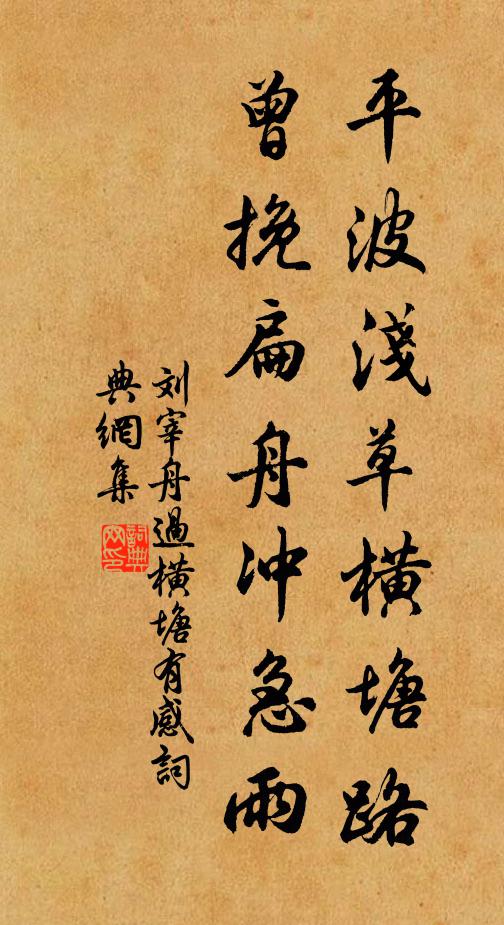 平波淺草橫塘路
曾挽扁舟冲急雨
刘宰舟過橫塘有感詞
典網集
詞典
网印